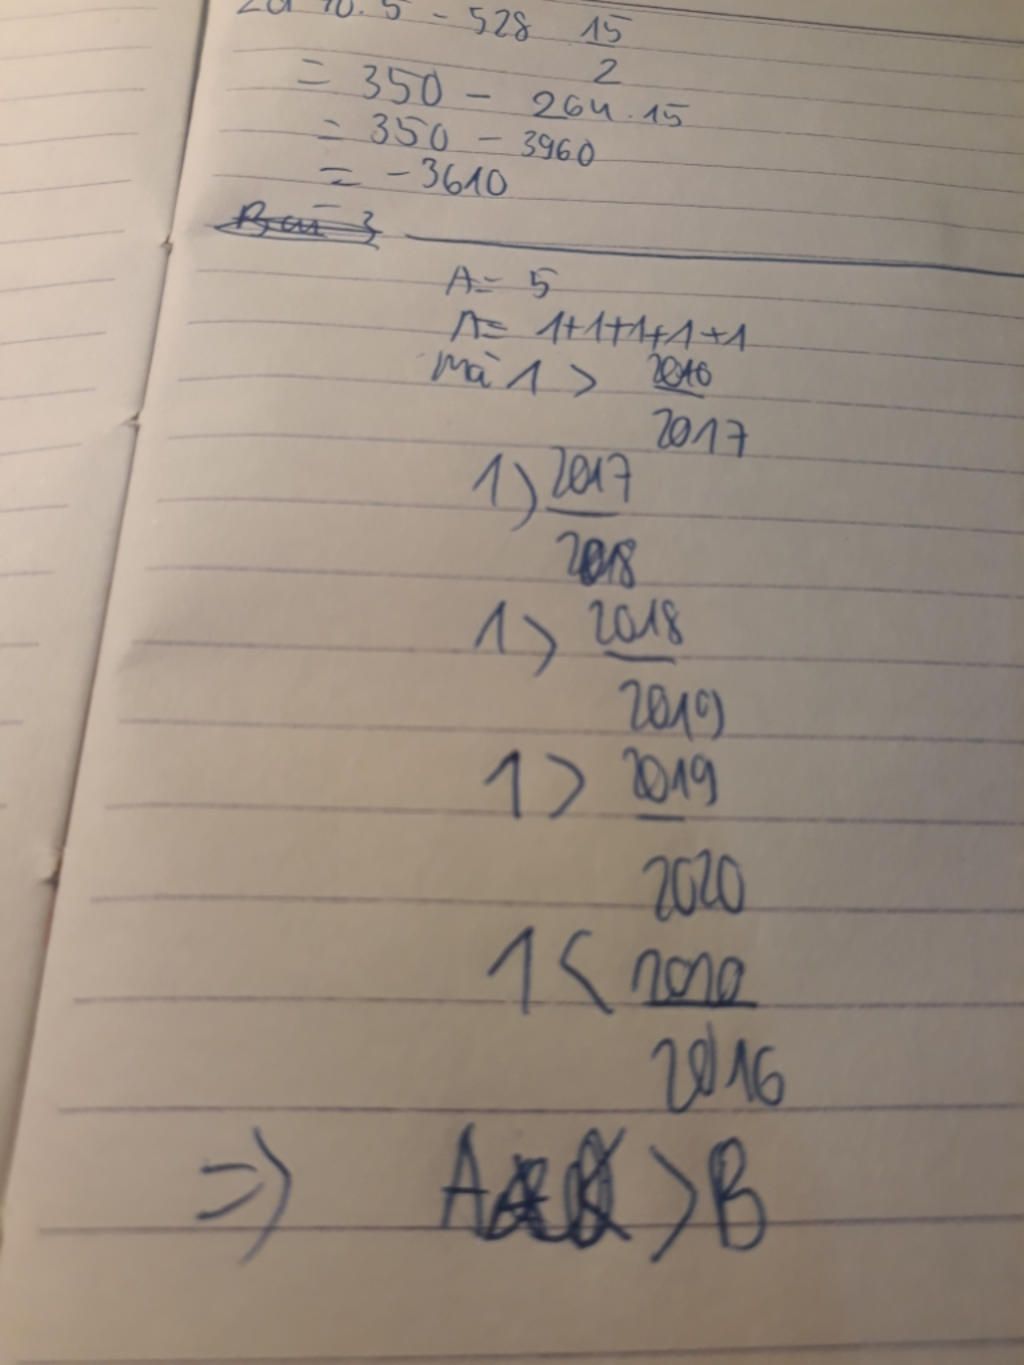 70.5 - 528 15
2
= 350 - 264.15
= 350 - 3960
= -3610
Bài 3
A= 5
A= 1+1+1+1+1
mà 1 > 2016
2017
1> 2017
2018
1> 2018
2019
1> 2019
2020
1< 2020
2016
=> A >B